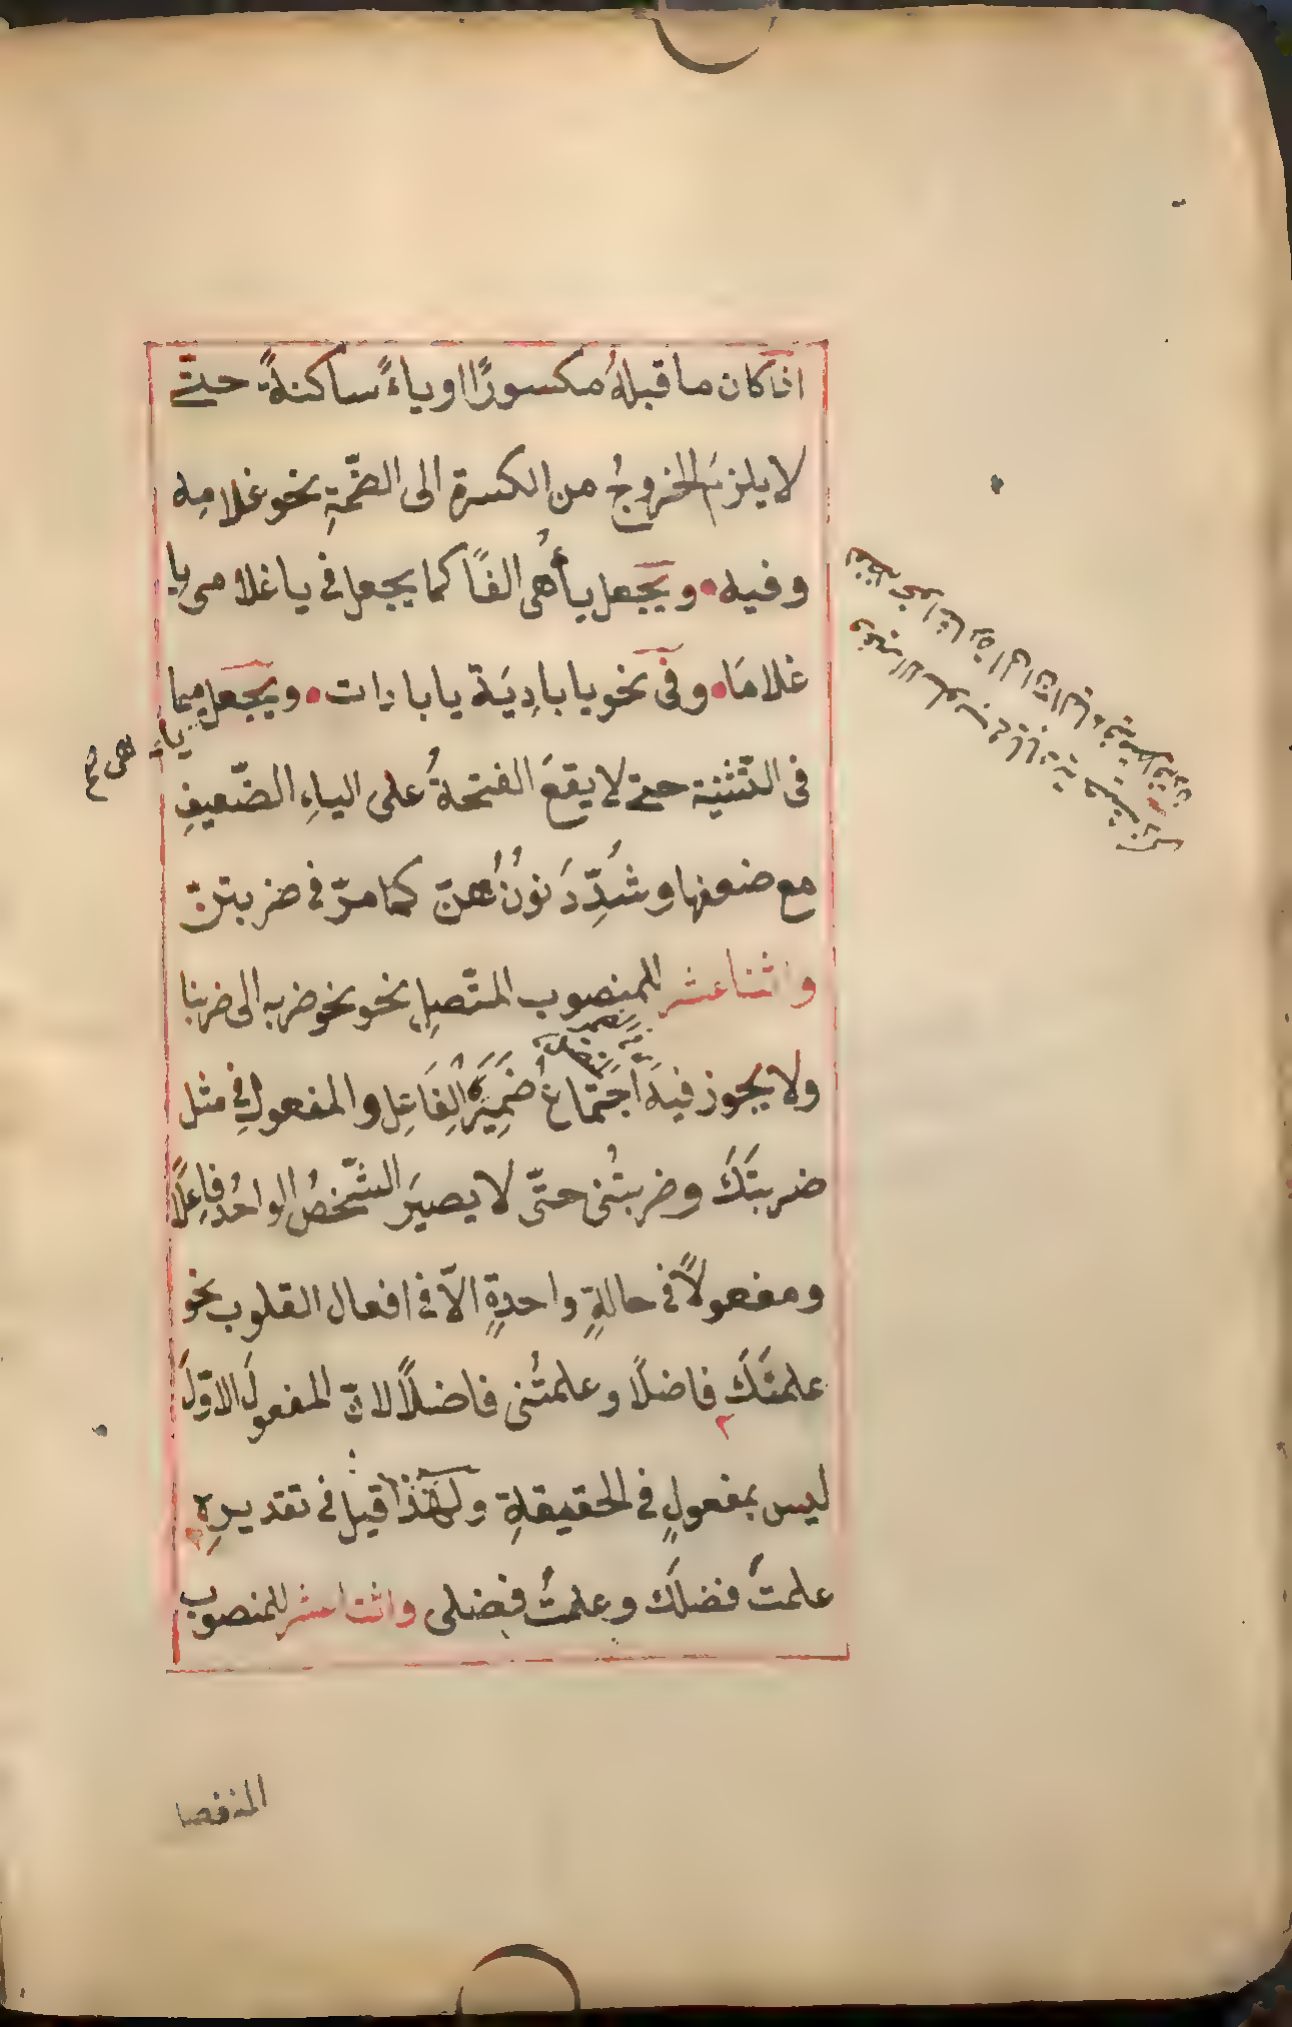 اذا كان ما قبلهُ مكسورًا او ياءً ساكنةً حتّے
لا يلزمَ الخروجُ من الكسرة الى الضّمّةِ نحو غلامِهِ
وفيه • و يجعل ياُ هُى الفًا كما يجعل فى يا غلامى يا
غلامَا • وفى نحو يا بادِيَة يا باداة • و يجعل ميما
ياء
فى التّثنية حتے لا يقعَ الفتحةُ على الياءِ الضّعيفِ
مع ضعفها و شُدِّدَ نونُ هُنّ كما مرّ فى ضربتنّ
واثنا عشر للمنصوب المتّصلِ نحو نحو ضربه الى ضربنا
ولا يجوز فيهَ اجتماعُ ضميرَىِ الفَاعِلِ والمفعولِ فى مثل
ضربتَكَ وضربتُنى حتّى لا يصيَر الشّخصُ الواحُد فاعِلًا
ومفعولًا فى حالةٍ واحدةٍ الاّ فى افعال القلوب نحو
علمتَكَ فاضلًا وعلمتُنى فاضلًا لانّ المفعولَ الاوّلَ
ليس بمفعولٍ فى الحقيقةِ ولهٰذا قيل فى تقديرِه
علمتَ فضلَك وعلمتُ فضلى واثنا عشر للمنصوب
المنفصل